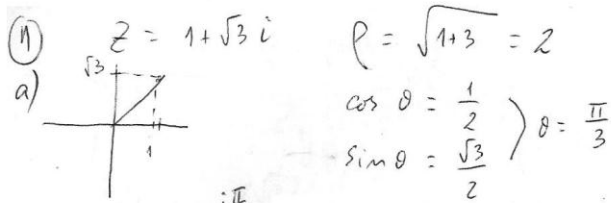 11 z = 1 + √3 i ρ = √1+3 = 2
a) √3 1
cos θ = 1/2
sin θ = √3/2 ) θ = π/3
iπ